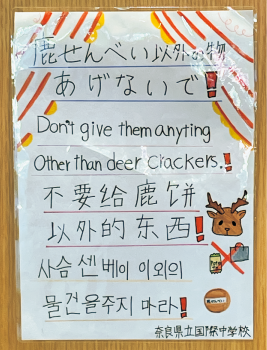 鹿せんべい以外の物
あげないで!
Don't give them anyting
Other than deer crackers.!
不要给鹿饼
以外的东西!
사슴 센베이 이외의
물건을주지 마라!
奈良県立国際中学校